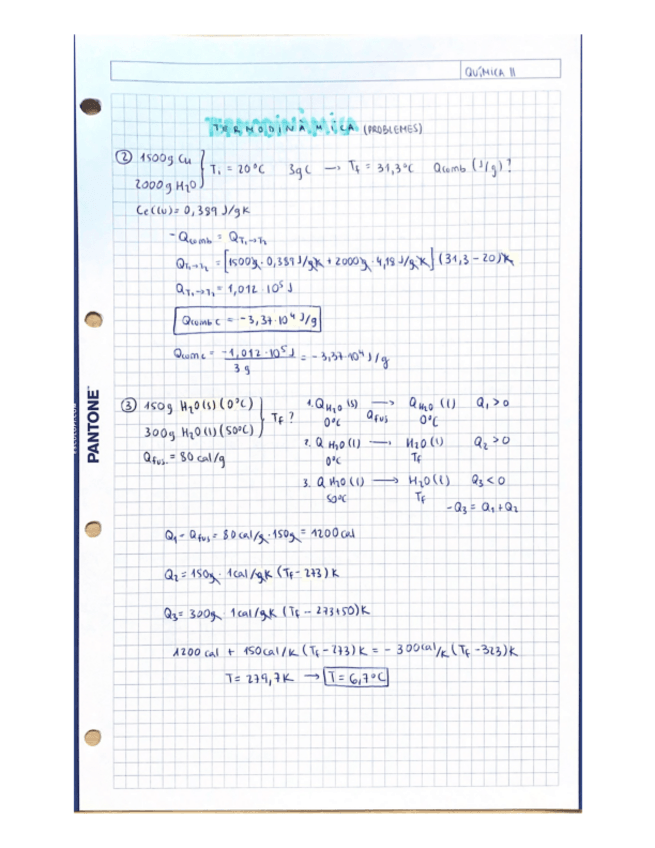 QUÍMICA II
TERMODINÀMICA (PROBLEMES)
② 1500g Cu } T₁ = 20°C 3g C → Tf = 31,3°C Qcomb (J/g)?
2000g H₂O
Ce(Cu) = 0,389 J/gK
-Qcomb = QT₁→T₂
QT₁→T₂ = [1500g · 0,389 J/gK + 2000g · 4,18 J/gK] (31,3 - 20)K
QT₁→T₂ = 1,012 · 10⁵ J
Qcomb C = -3,37·10⁴ J/g
Qcom C = -1,012 · 10⁵ J / 3g = -3,37·10⁴ J/g
③ 150g H₂O(s) (0°C) } Tf?
300g H₂O(l) (50°C)
Qfus. = 80 cal/g
1. Q H₂O (s) → Q H₂O (l) Q₁ > 0
0°C Qfus 0°C
2. Q H₂O (l) → H₂O (l) Q₂ > 0
0°C Tf
3. Q H₂O (l) → H₂O (l) Q₃ < 0
50°C Tf
-Q₃ = Q₁ + Q₂
Q₁ = Qfus = 80 cal/g · 150g = 1200 cal
Q₂ = 150g · 1 cal/gK (Tf - 273) K
Q₃ = 300g · 1 cal/gK (Tf - 273+50) K
1200 cal + 150 cal/K (Tf - 273) K = - 300 cal/K (Tf - 323) K
T = 279,7 K → T = 6,7°C
PANTONE